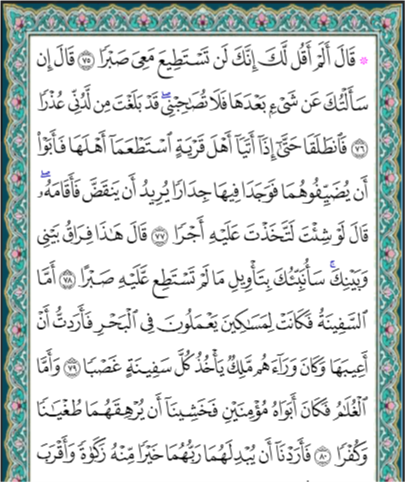 ۞ قَالَ أَلَمْ أَقُل لَّكَ إِنَّكَ لَن تَسْتَطِيعَ مَعِيَ صَبْرًا ۝٧٥ قَالَ إِن
سَأَلْتُكَ عَن شَيْءٍۭ بَعْدَهَا فَلَا تُصَٰحِبْنِىۖ قَدْ بَلَغْتَ مِن لَّدُنِّى عُذْرًا
۝٧٦ فَٱنطَلَقَا حَتَّىٰٓ إِذَآ أَتَيَآ أَهْلَ قَرْيَةٍ ٱسْتَطْعَمَآ أَهْلَهَا فَأَبَوْا۟
أَن يُضَيِّفُوهُمَا فَوَجَدَا فِيهَا جِدَارًا يُرِيدُ أَن يَنقَضَّ فَأَقَامَهُۥۖ
قَالَ لَوْ شِئْتَ لَتَّخَذْتَ عَلَيْهِ أَجْرًا ۝٧٧ قَالَ هَٰذَا فِرَاقُ بَيْنِى
وَبَيْنِكَۚ سَأُنَبِّئُكَ بِتَأْوِيلِ مَا لَمْ تَسْتَطِع عَّلَيْهِ صَبْرًا ۝٧٨ أَمَّا
ٱلسَّفِينَةُ فَكَانَتْ لِمَسَٰكِينَ يَعْمَلُونَ فِى ٱلْبَحْرِ فَأَرَدتُّ أَنْ
أَعِيبَهَا وَكَانَ وَرَآءَهُم مَّلِكٌ يَأْخُذُ كُلَّ سَفِينَةٍ غَصْبًا ۝٧٩ وَأَمَّا
ٱلْغُلَٰمُ فَكَانَ أَبَوَاهُ مُؤْمِنَيْنِ فَخَشِينَآ أَن يُرْهِقَهُمَا طُغْيَٰنًا
وَكُفْرًا ۝٨٠ فَأَرَدْنَآ أَن يُبْدِلَهُمَا رَبُّهُمَا خَيْرًا مِّنْهُ زَكَوٰةً وَأَقْرَبَ